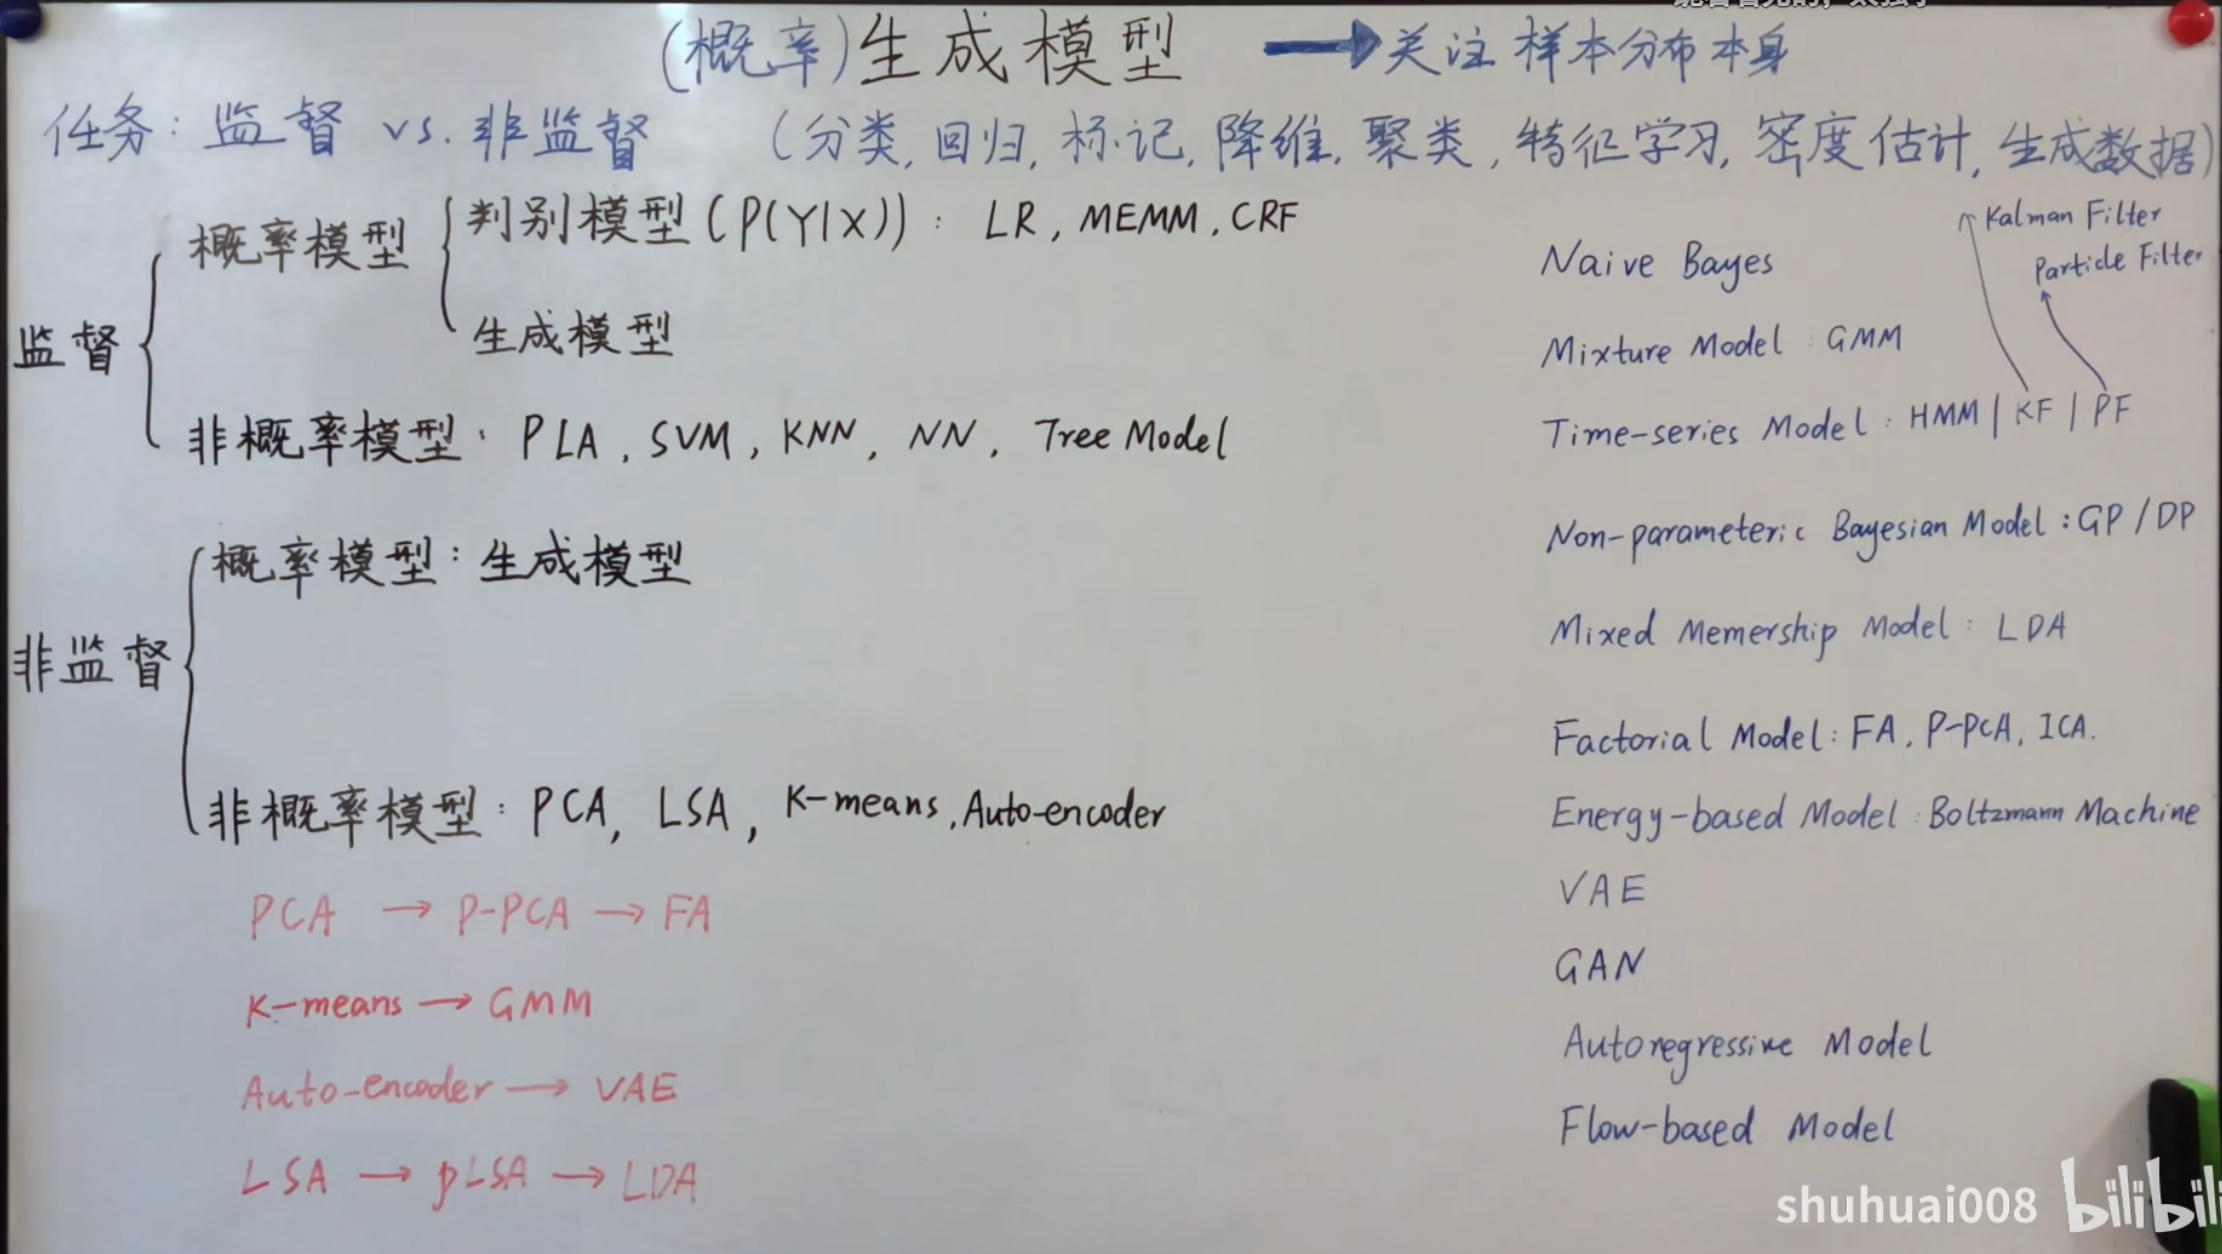 (概率)生成模型 → 关注样本分布本身
任务: 监督 vs. 非监督 (分类, 回归, 标记, 降维, 聚类, 特征学习, 密度估计, 生成数据)
监督
概率模型
判别模型(P(Y|X)): LR, MEMM, CRF
生成模型
非概率模型: PLA, SVM, KNN, NN, Tree Model
非监督
概率模型: 生成模型
非概率模型: PCA, LSA, K-means, Auto-encoder
PCA → P-PCA → FA
K-means → GMM
Auto-encoder → VAE
LSA → pLSA → LDA
Kalman Filter
Particle Filter
Naive Bayes
Mixture Model: GMM
Time-series Model: HMM | KF | PF
Non-parameteric Bayesian Model: GP / DP
Mixed Memership Model: LDA
Factorial Model: FA, P-PCA, ICA.
Energy-based Model: Boltzmann Machine
VAE
GAN
Autoregressive Model
Flow-based Model
shuhuai008 bilibili